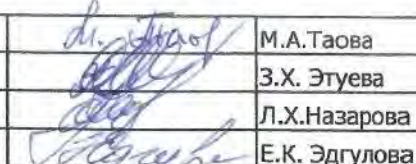 М.А.Таова
З.Х. Этуева
Л.Х.Назарова
Е.К. Эдгулова